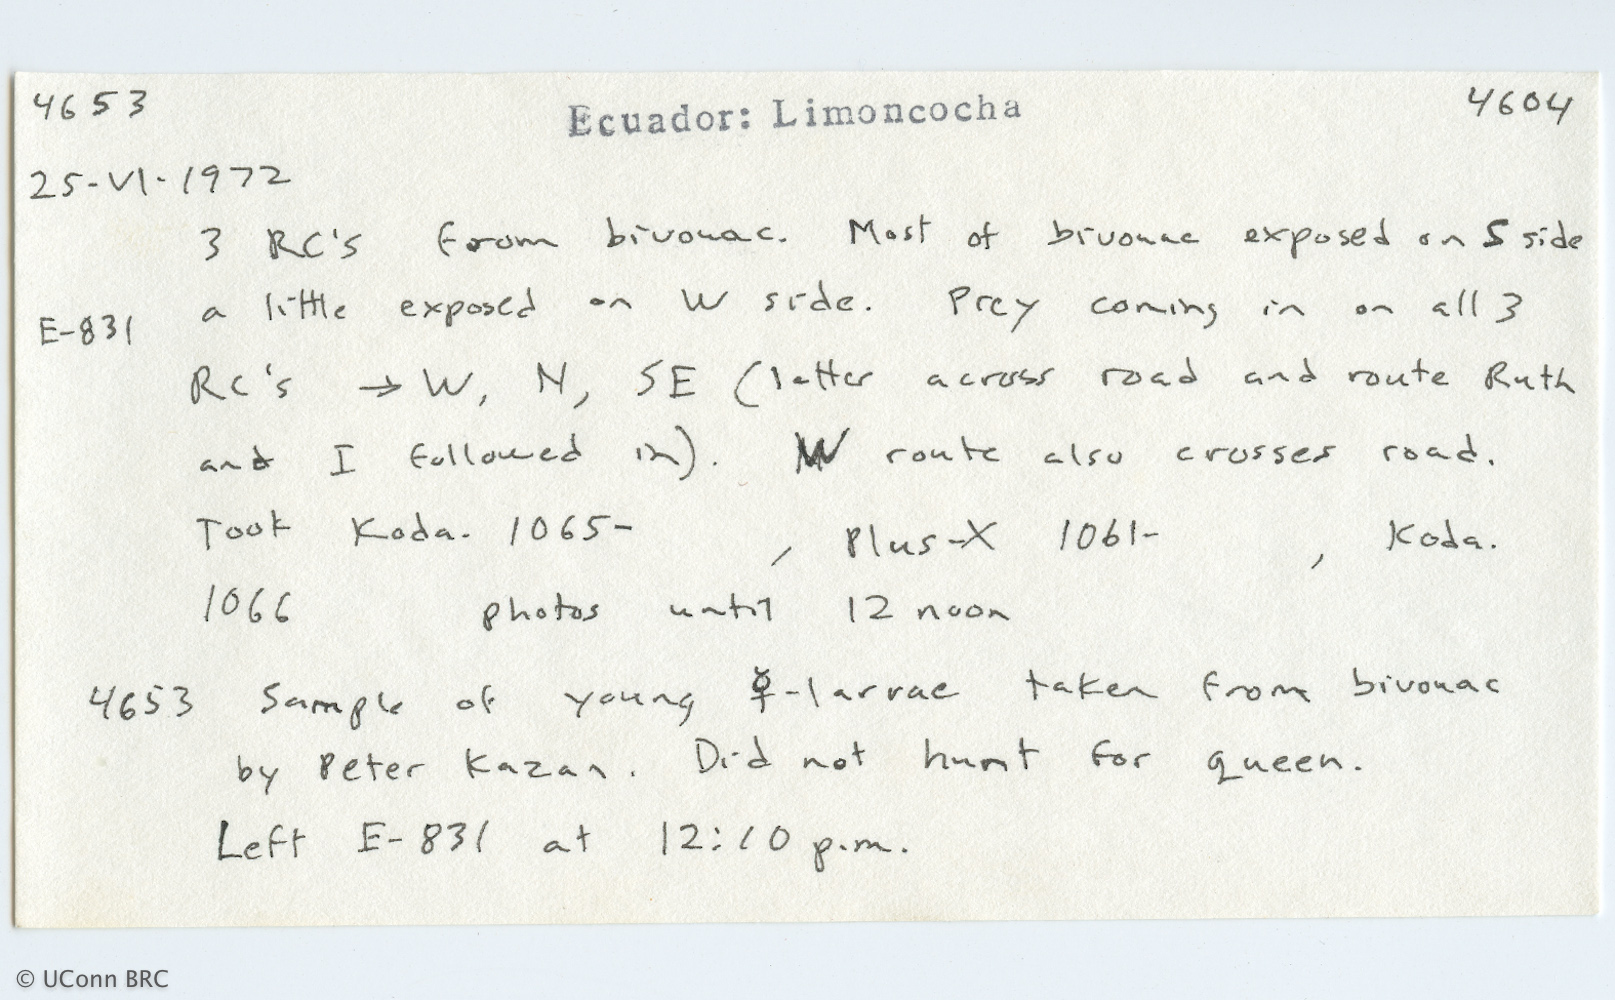 4653 Ecuador: Limoncocha 4604
25-VI-1972
3 RC's from bivouac. Most of bivouac exposed on S side
E-831 a little exposed on W side. Prey coming in on all 3
RC's → W, N, SE (latter across road and route Ruth
and I followed in). W route also crosses road.
Took Koda. 1065- , Plus-X 1061- , Koda.
1066 photos until 12 noon
4653 Sample of young ☿-larvae taken from bivouac
by Peter Kazan. Did not hunt for queen.
Left E-831 at 12:10 p.m.
© UConn BRC